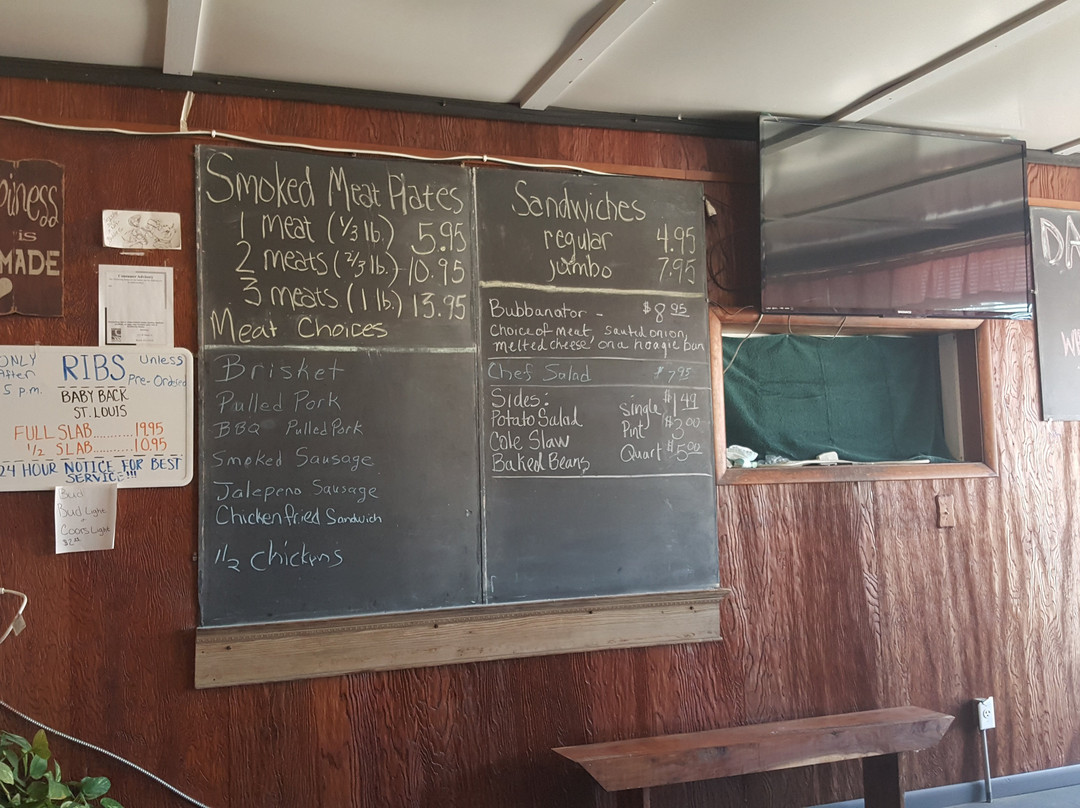 piness
is
MADE
ONLY
After
5 p.m.
RIBS
Unless
Pre-Ordered
BABY BACK
ST. LOUIS
FULL SLAB.......... 19.95
1/2 SLAB.......... 10.95
24 HOUR NOTICE FOR BEST
SERVICE!!!
Bud
Bud Light
Coors Light
Smoked Meat Plates
1 meat (1/3 lb.) 5.95
2 meats (2/3 lb.) 10.95
3 meats (1 lb.) 13.95
Meat Choices
Brisket
Pulled Pork
BBQ Pulled Pork
Smoked Sausage
Jalepeno Sausage
Chicken fried Sandwich
1/2 chickens
Sandwiches
regular 4.95
jumbo 7.95
Bubbanator - $8.95
choice of meat, sauted onion,
melted cheese, on a hoagie bun
Chef Salad $7.95
Sides:
Potato Salad single $1.49
Cole Slaw Pint $3.00
Baked Beans Quart $5.00
DA